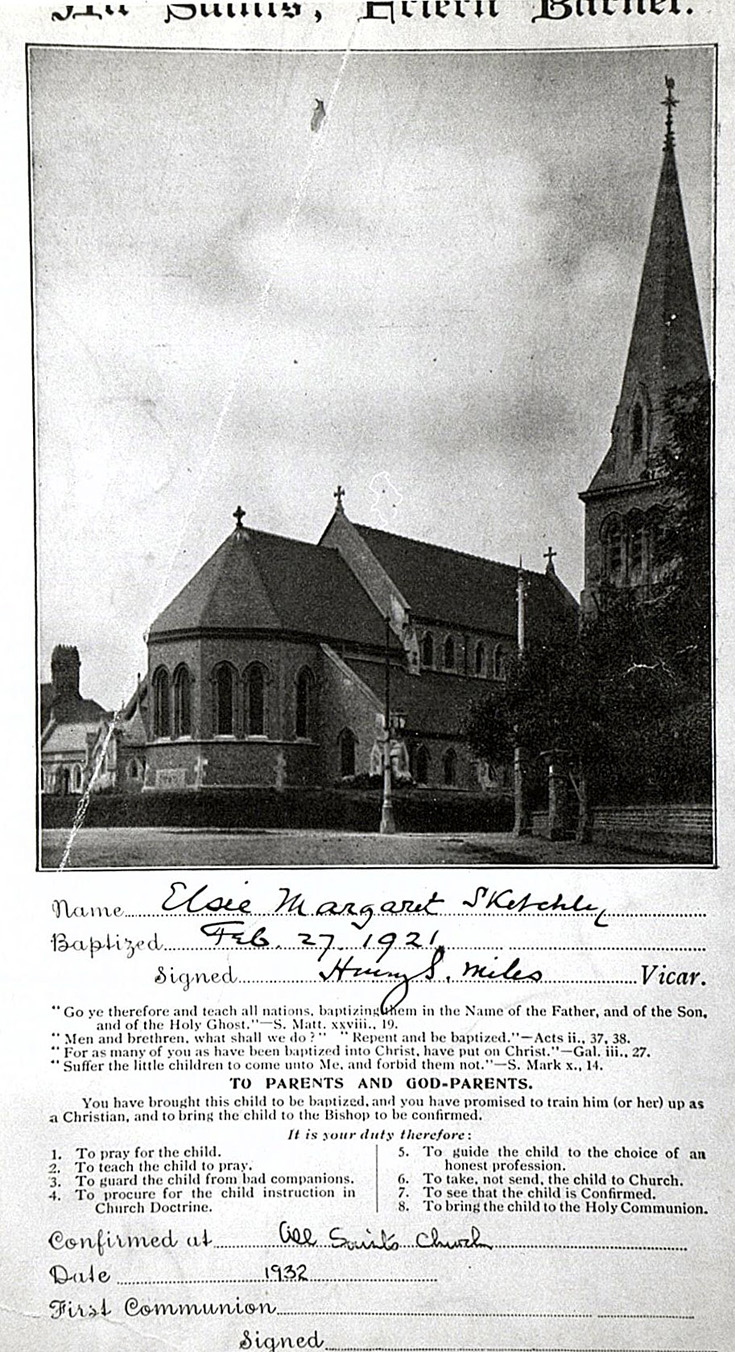 All Saints, Friern Barnet.
Name Elsie Margaret Sketchley
Baptized Feb. 27. 1921
Signed Henry S. Miles Vicar.
"Go ye therefore and teach all nations, baptizing them in the Name of the Father, and of the Son,
and of the Holy Ghost."—S. Matt. xxviii., 19.
"Men and brethren, what shall we do?" "Repent and be baptized."—Acts ii., 37, 38.
"For as many of you as have been baptized into Christ, have put on Christ."—Gal. iii., 27.
"Suffer the little children to come unto Me, and forbid them not."—S. Mark x., 14.
TO PARENTS AND GOD-PARENTS.
You have brought this child to be baptized, and you have promised to train him (or her) up as
a Christian, and to bring the child to the Bishop to be confirmed.
It is your duty therefore:
1. To pray for the child.
2. To teach the child to pray.
3. To guard the child from bad companions.
4. To procure for the child instruction in
Church Doctrine.
5. To guide the child to the choice of an
honest profession.
6. To take, not send, the child to Church.
7. To see that the child is Confirmed.
8. To bring the child to the Holy Communion.
Confirmed at All Saints Church
Date 1932
First Communion
Signed